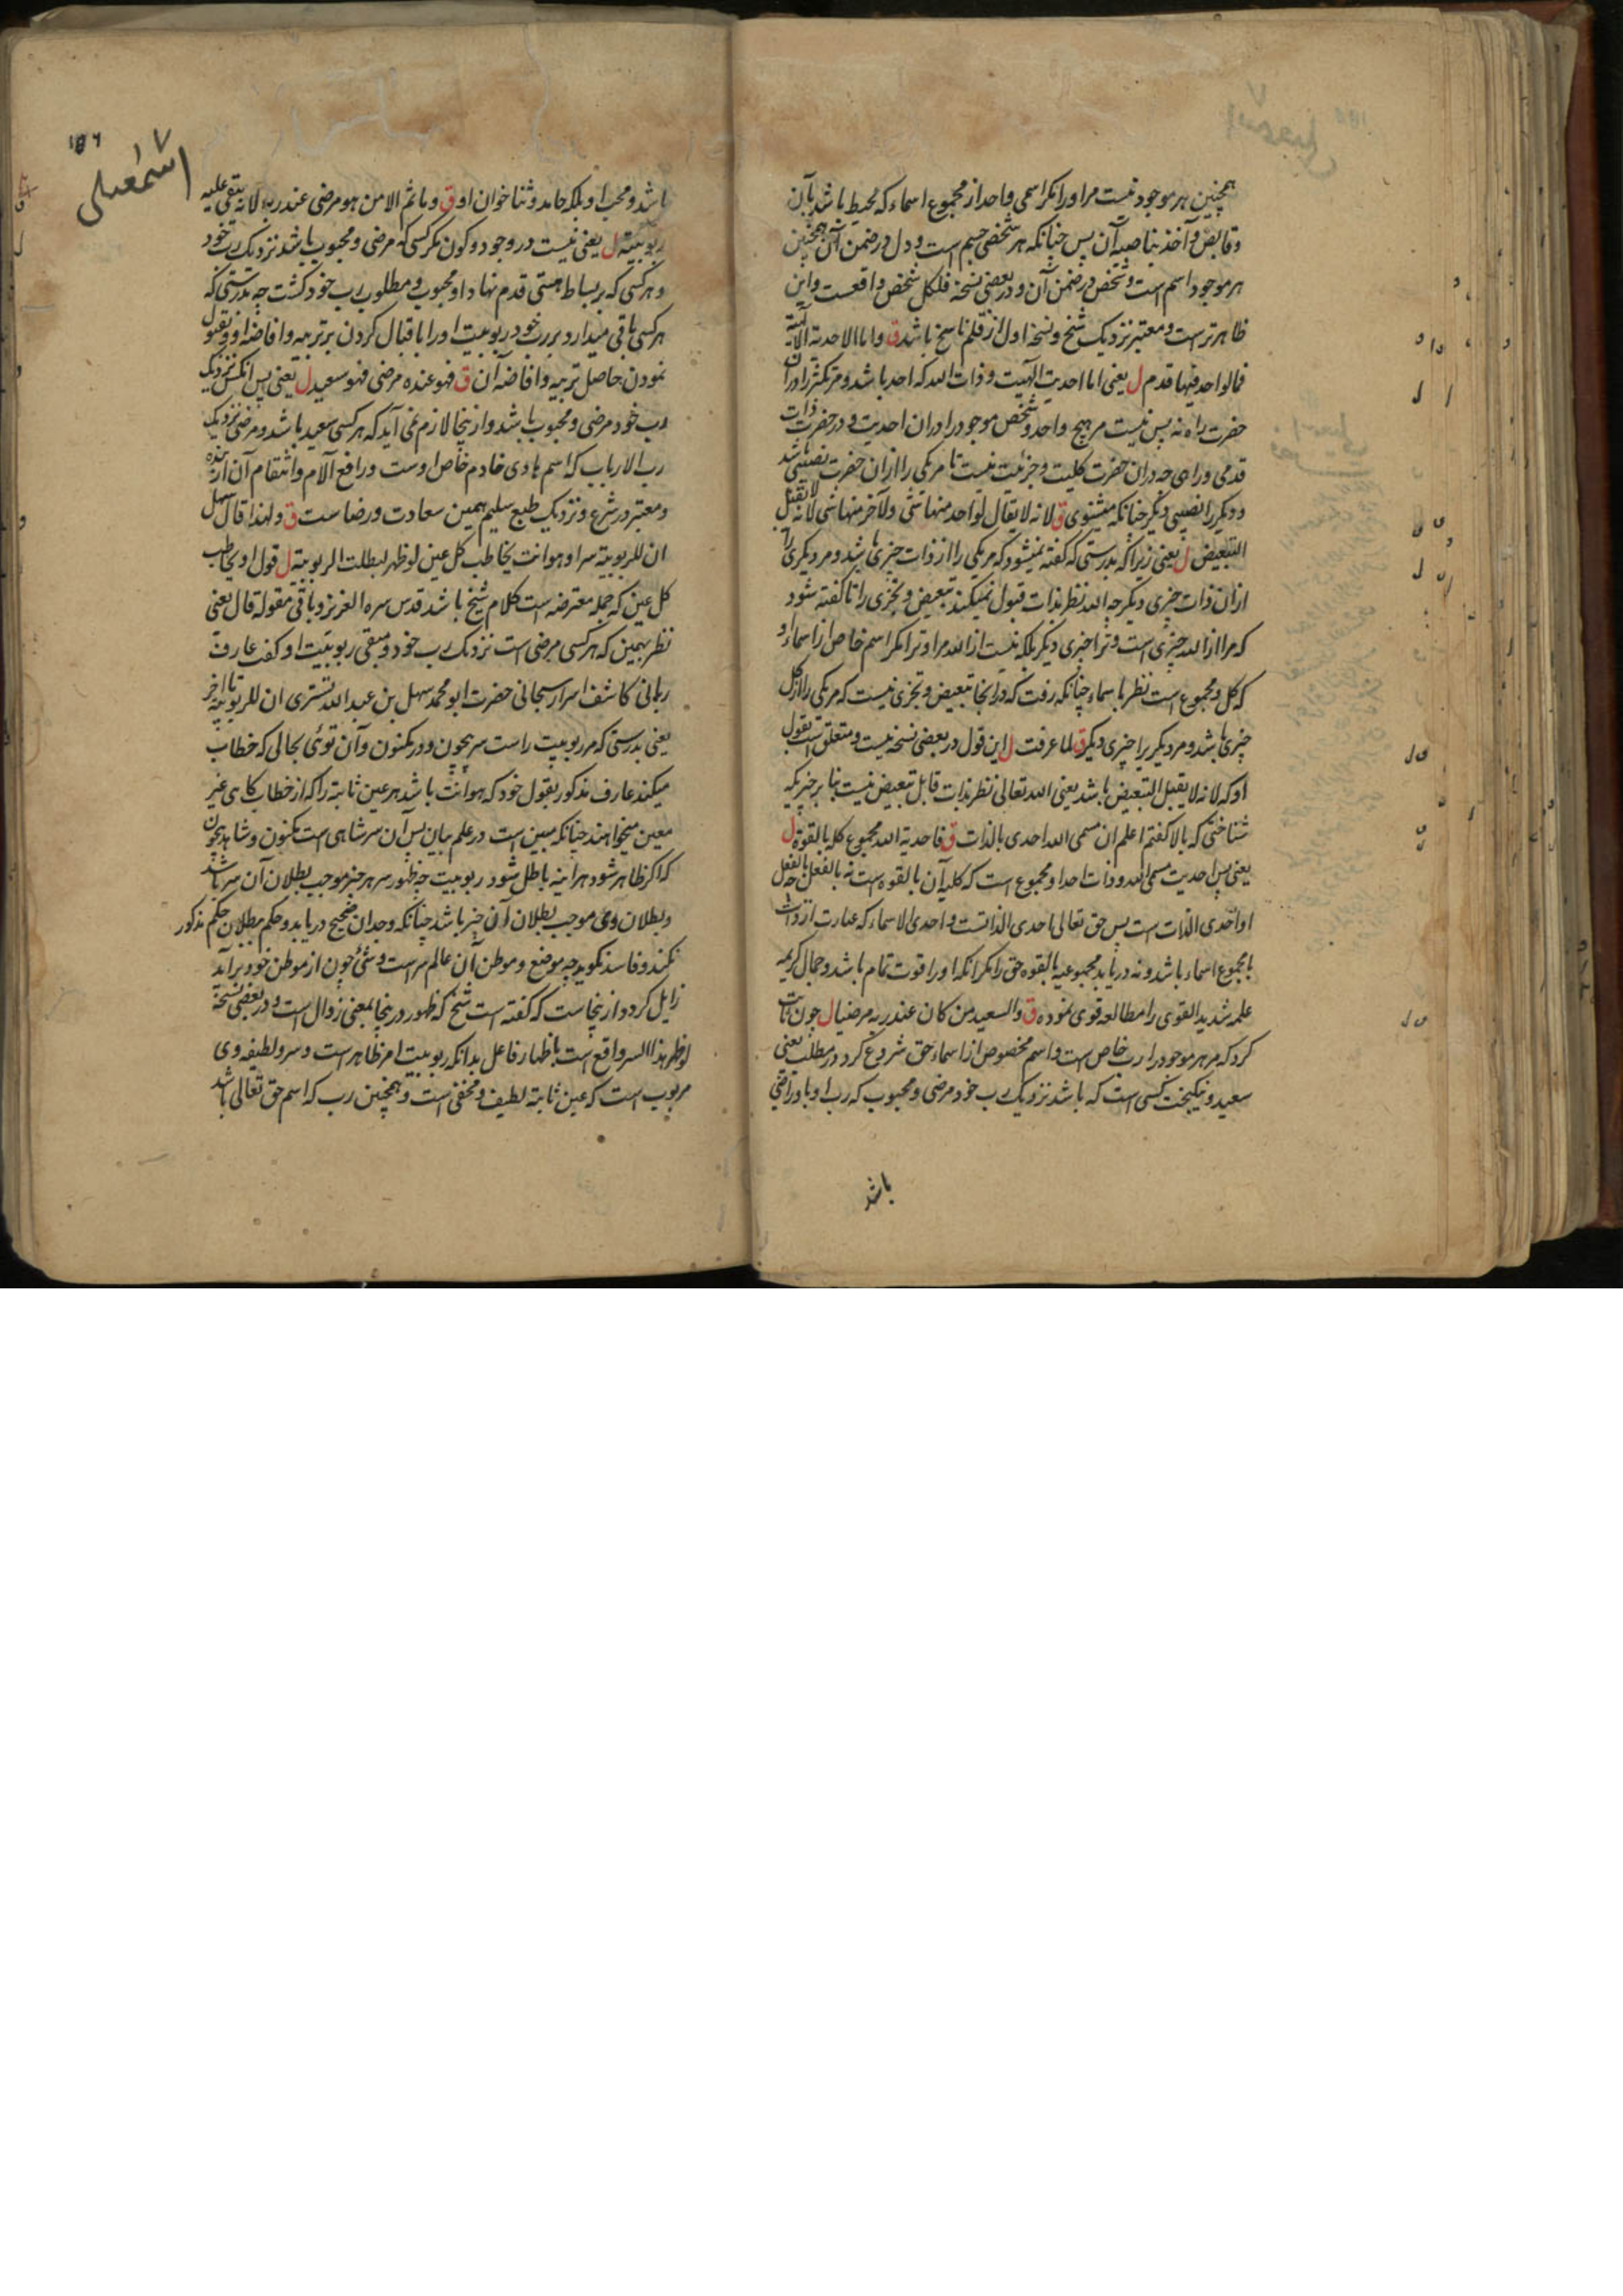 همچنین هر موجود نیست مر او را مگر اسمی واحد از مجموع اسماء که محیط باشد بآن
و قابض و آخذ بناصیه آن پس چنانکه هر شخصی جسم است و دل در ضمن آن همچنین
هر موجود اسم است و شخص در ضمن آن و در بعضی نسخه فلکل شخص واقعست و این
ظاهرتر است و معتبر نزدیک شیخ و نسخه اول از قلم ناسخ باشد ق و اما الاحدیة الالهیة
فما لواحد فیها قدم ل یعنی اما احدیت الهیت و ذات الله که احد باشد و مر تکثر را در آن
حضرت راه نه پس نیست مر هیچ واحد و شخص موجود را در آن احدیت و در حضرت ذات
قدمی و راهی چه در آن حضرت کلیت و جزئیت نیست تا مر یکی را از آن حضرت نصیبی باشد
و دیگر را نصیبی دیگر چنانکه میشنوی ق لانه لا یقال لواحد منها شی و لآخر منها شی لانه لا تقبل
التبعیض ل یعنی زیرا که بدرستی که گفته نمیشود که مر یکی را از ذات چیزی باشد و مر دیگری را
از آن ذات چیزی دیگر چه الله نظر بذات قبول نمیکند تبعیض و تجزی را تا گفته شود
که مرا از الله چیزی است و ترا چیزی دیگر بلکه نیست از الله مرا و ترا مگر اسم خاص از اسماء او
که کل و مجموع است نظر باسماء چنانکه رفت که در آنجا تبعیض و تجزی نیست که مر یکی را از کل
چیزی باشد و مر دیگری را چیزی دیگر ق لما عرفت ل این قول در بعضی نسخه نیست و متعلق است بقول
او که لانه لا یقبل التبعیض باشد یعنی الله تعالی نظر بذات قابل تبعیض نیست بنا بر چیزیکه
شناختی که بالا گفتم اعلم ان مسمی الله احدی بالذات ق فاحدیة الله مجموع کله بالقوة ل
یعنی پس احدیت مسمی الله و ذات احد او مجموع است که کلیه آن بالقوه است نه بالفعل چه بالفعل
او احدی الذات است پس حق تعالی احدی الذاتست و احدی الاسماء که عبارت از ذات
با مجموع اسماء باشد و نه دریابد مجموعیه بالقوه حق را مگر آنکه او را قوت تمام باشد و جمال کریمه
علمه شدید القوی را مطالعه قوی نموده ق و السعید من کان عند ربه مرضیا ل چون ثابت
کرد که مر هر موجود را رب خاص است و اسم مخصوص از اسماء حق شروع کرد در مطلب یعنی
سعید و نیکبخت کسی است که باشد نزدیک رب خود مرضی و محبوب که رب او با و راضی
باشد
اسمعیلی
۱۵۶
باشد و محب او بلکه حامد و ثنا خوان او ق و ما ثم الا من هو مرضی عند ربه لانه یبقی علیه
ربوبیته ل یعنی نیست در وجود و کون مگر کسی که مرضی و محبوب باشد نزدیک رب خود
و هر کسی که بر بساط هستی قدم نهاد او محبوب و مطلوب رب خود گشت چه بدرستی که
هر کسی باقی میدارد بر رب خود ربوبیت او را با قبال کردن بر تربیه و افاضه او و بقبول
نمودن حاصل تربیه و افاضه آن ق فهو عنده مرضی فهو سعید ل یعنی پس آنکس نزدیک
رب خود مرضی و محبوب باشد و از ینجا لازم می آید که هر کسی سعید باشد و مرضی نزدیک
رب الارباب که اسم هادی خادم خاص اوست و رافع آلام و انتقام آن آرنده
و معتبر در شرع و نزدیک طبع سلیم همین سعادت و رضا ست ق و لهذا قال سهل
ان للربوبیة سرا و هو انت یخاطب کل عین لو ظهر لبطلت الربوبیة ل قول او یخاطب
کل عین که جمله معترضه است کلام شیخ باشد قدس سره العزیز و باقی مقوله قال یعنی
نظر بهمین که هر کسی مرضی است نزدیک رب خود و مبقی ربوبیت او گفت عارف
ربانی کاشف اسرار سبحانی حضرت ابو محمد سهل بن عبد الله تستری ان للربوبیة تا آخر
یعنی بدرستی که مر ربوبیت راست سر بیچون و در مکنون و آن توئی بحالی که خطاب
میکند عارف مذکور بقول خود که هو انت باشد هر عین ثابته را که از خطاب گاهی غیر
معین میخواهند چنانکه مبین است در علم بیان پس آن سر شاهی است مکنون و شاهد بیچون
که اگر ظاهر شود هر اینه باطل شود ربوبیت چه ظهور سر هر چیز موجب بطلان آن سر باشد
و بطلان وی موجب بطلان آن چیز باشد چنانکه وجدان صحیح دریابد و حکم ببطلان حکم مذکور
نکند و فاسد نگوید چه موضع و موطن آن عالم سر است و شئ چون از موطن خود بر آید
زایل گردد از ینجاست که گفته است شیخ که ظهور در ینجا بمعنی زوال است و در بعضی نسخه
لو ظهر هذا السر واقع است باظهار فاعل بدانکه ربوبیت امر ظاهر است و سر و لطیفه وی
مربوب است که عین ثابته لطیف و مخفی است و همچنین رب که اسم حق تعالی باشد